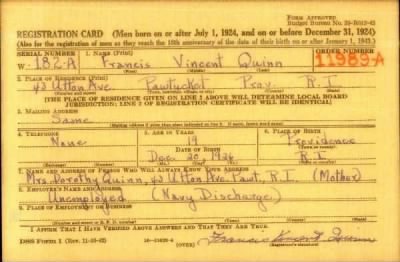 FORM APPROVED
Budget Bureau No. 33-R012-42
REGISTRATION CARD (Men born on or after July 1, 1924, and on or before December 31, 1924)
(Also for the registration of men as they reach the 18th anniversary of the date of their birth on or after January 1, 1943.)
SERIAL NUMBER
1. NAME (Print)
ORDER NUMBER
W 182-A
Francis Vincent Quinn
11989-A
(First) (Middle) (Last)
2. PLACE OF RESIDENCE (Print)
42 Utton Ave. Pawtucket Prov. R.I.
(Number and street) (Town) (County) (State)
[THE PLACE OF RESIDENCE GIVEN ON LINE 2 ABOVE WILL DETERMINE LOCAL BOARD
JURISDICTION; LINE 2 OF REGISTRATION CERTIFICATE WILL BE IDENTICAL]
3. MAILING ADDRESS
Same
4. TELEPHONE
5. AGE IN YEARS
6. PLACE OF BIRTH
None
19
Providence
DATE OF BIRTH
Dec. 20, 1924
R.I.
(Mo.) (Day) (Yr.)
7. NAME AND ADDRESS OF PERSON WHO WILL ALWAYS KNOW YOUR ADDRESS
Mrs. Dorothy Quinn, 42 Utton Ave. Pawt., R.I. (Mother)
8. EMPLOYER'S NAME AND ADDRESS
Unemployed (Navy Discharge)
9. PLACE OF EMPLOYMENT OR BUSINESS
I AFFIRM THAT I HAVE VERIFIED ABOVE ANSWERS AND THAT THEY ARE TRUE.
DSS Form 1 (Rev. 11-16-42)
(OVER)
Francis Vincent Quinn
(Registrant's signature)